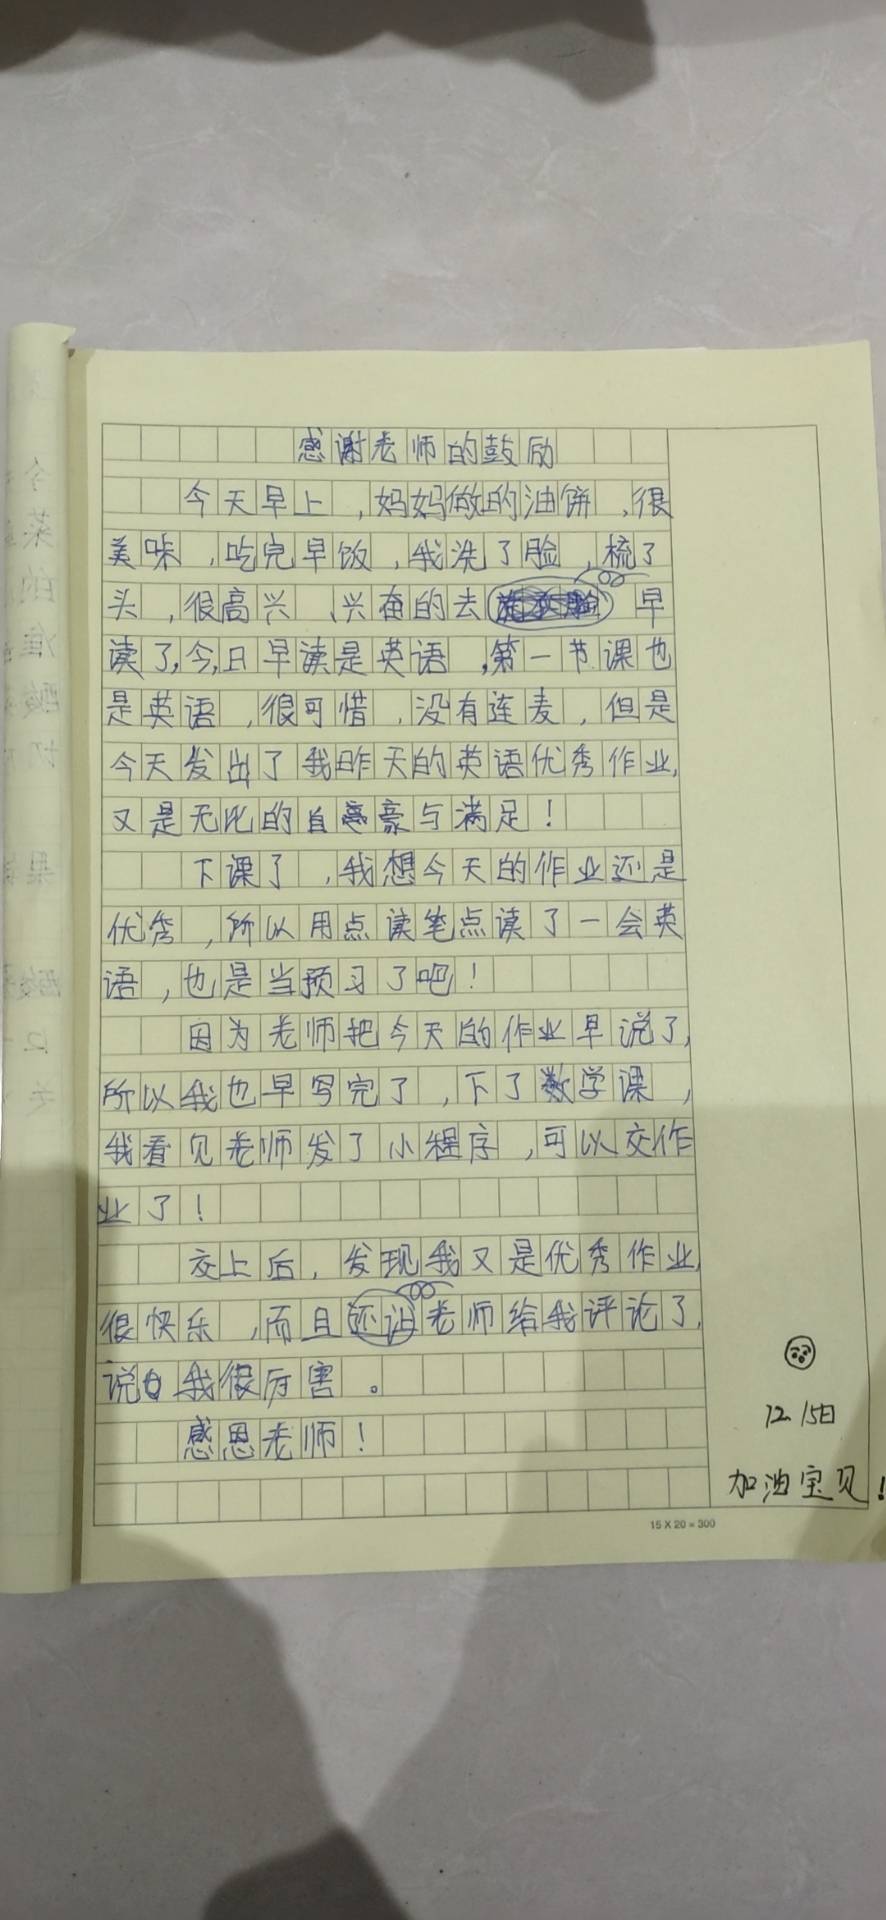 感谢老师的鼓励
今天早上，妈妈做的油饼，很
美味，吃完早饭，我洗了脸，梳了
头，很高兴、兴奋的去早
读了，今日早读是英语，第一节课也
是英语，很可惜，没有连麦，但是
今天发出了我昨天的英语优秀作业，
又是无比的自豪与满足！
下课了，我想今天的作业还是
优秀，所以用点读笔点读了一会英
语，也是当预习了吧！
因为老师把今天的作业早说了，
所以我也早写完了，下了数学课，
我看见老师发了小程序，可以交作
业了！
交上后，发现我又是优秀作业，
很快乐，而且还让老师给我评论了，
说我很厉害。
感恩老师！
12.15日
加油宝贝！
15 X 20 = 300